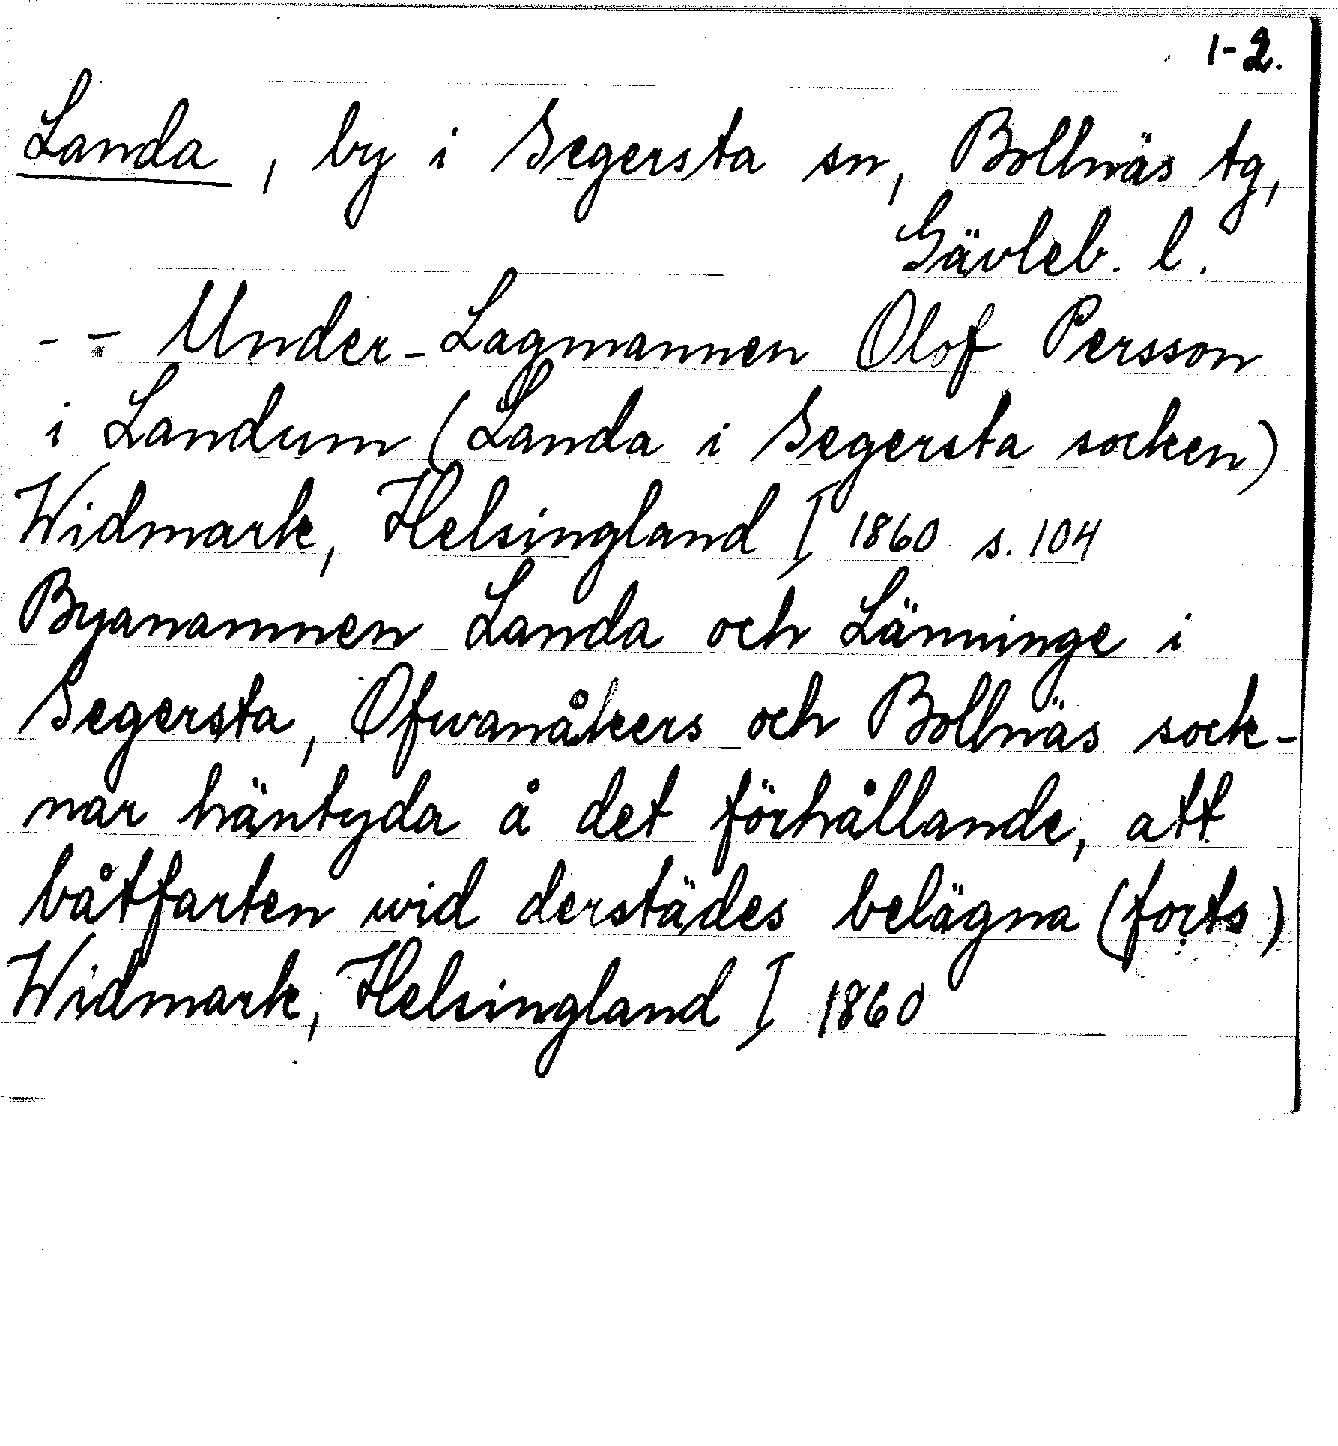 1-2.
Landa, by i Segersta sn, Bollnäs tg,
Gävleb. l.
- - Under-Lagmannen Olof Persson
i Landum (Landa i Segersta socken)
Widmark, Helsingland I 1860 s. 104
Byanamnen Landa och Länninge i
Segersta, Ofwanåkers och Bollnäs sock-
nar häntyda å det förhållande, att
båtfarten wid derstädes belägna (forts)
Widmark, Helsingland I 1860